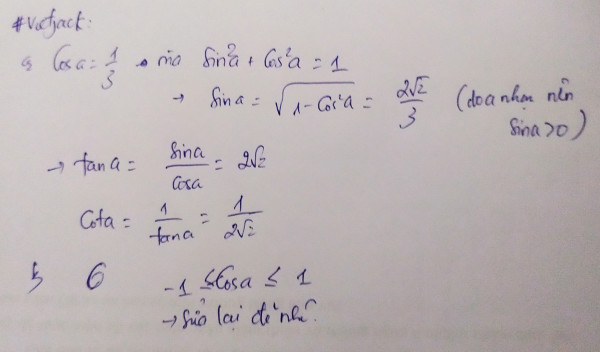 #Vatjack:
a, Cosa = 1/3 mà Sin²a + Cos²a = 1
→ Sina = √(1-Cos²a) = 2√2/3 (do a nhọn nên sina>0)
→ tana = Sina/Cosa = 2√2
Cota = 1/tana = 1/2√2
b, -1 ≤ Cosa ≤ 1
→ Sửa lại đề nhé.